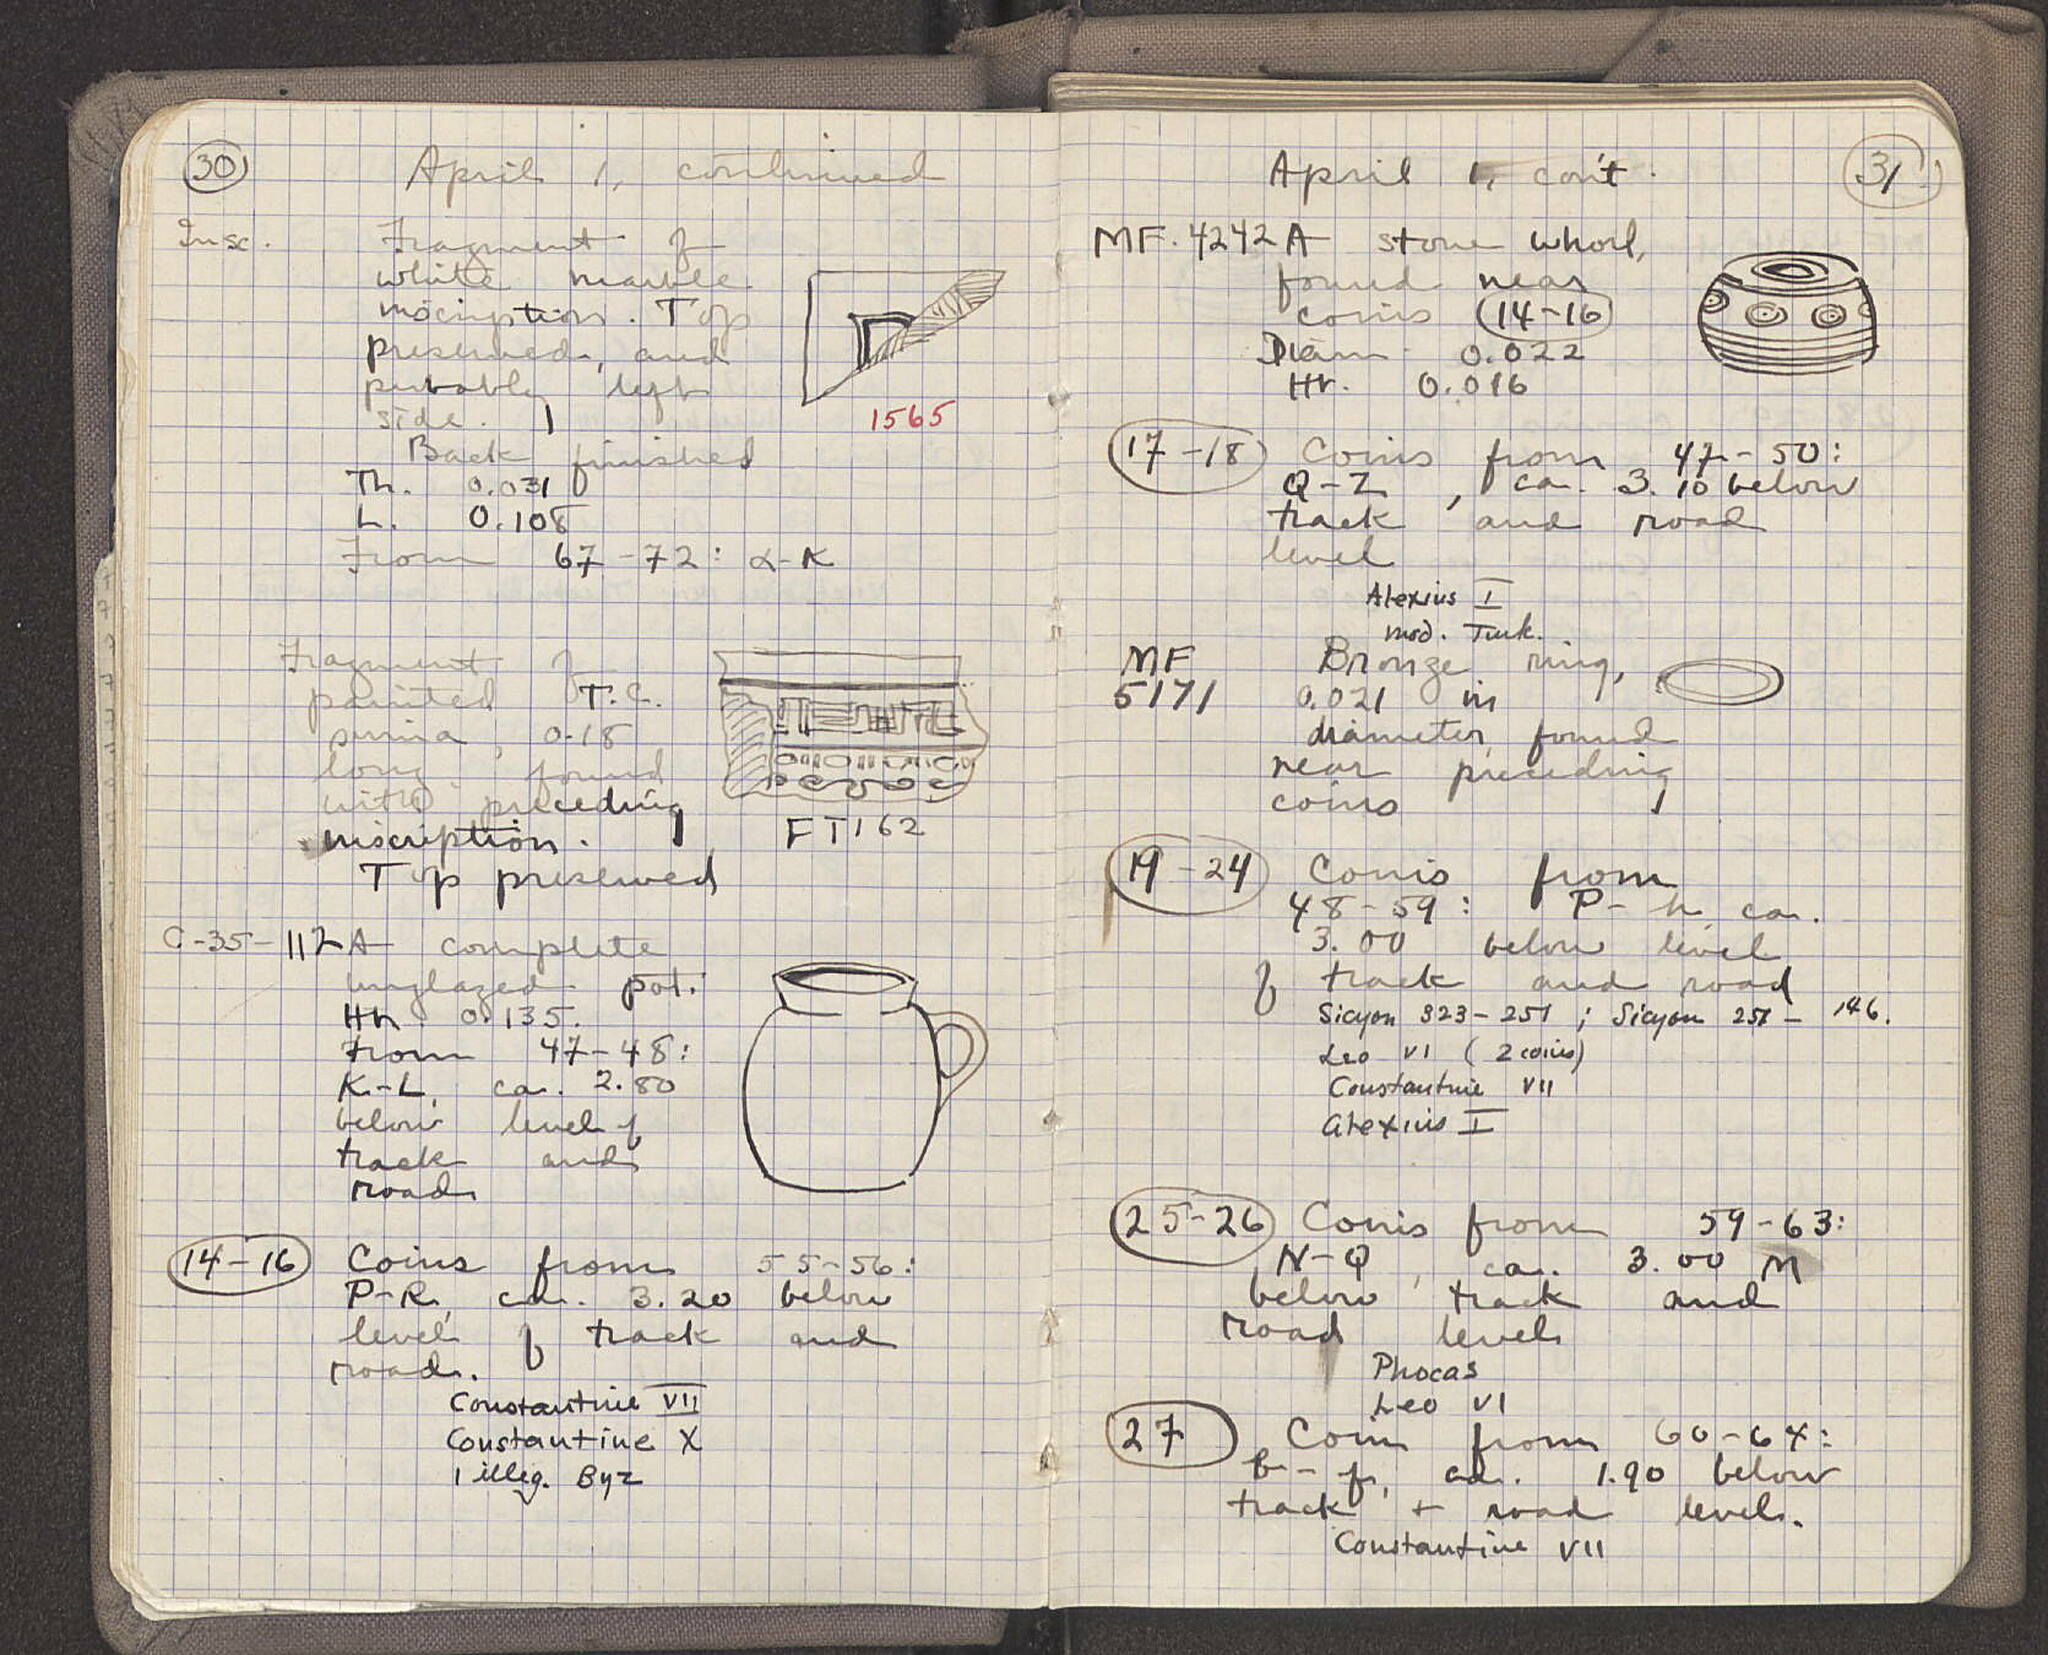 30
April 1, continued
Insc. Fragment of
white marble
inscription. Top
preserved, and
probably left
side.
1565
Back finished
Th. 0.031
L. 0.108
From 67-72: α-κ
Fragment of
painted T.C.
sima, 0.18
long. found
with preceding
inscription.
Top preserved
FT162
C-35-112 A complete
unglazed pot.
Ht. 0.135.
From 47-48:
K-L, ca. 2.80
below level of
track and
road.
14-16 Coins from 55-56:
P-R, ca. 3.20 below
level of track and
road.
Constantine VII
Constantine X
1 illeg. Byz
31
April 1, con't.
MF. 4242 A stone whorl,
found near
coins 14-16
Diam. 0.022
Ht. 0.016
17-18 Coins from 47-50:
Q-Z, ca. 3.10 below
track and road
level
Alexius I
mod. Turk.
MF Bronze ring,
5171 0.021 in
diameter, found
near preceding
coins
19-24 Coins from
48-59: P- ca.
3.00 below level
of track and road
Sicyon 323-251; Sicyon 251-146.
Leo VI (2 coins)
Constantine VII
Alexius I
25-26 Coins from 59-63:
N-Q, ca. 3.00 M
below track and
road level
Phocas
Leo VI
27 Coin from 60-64:
ca. 1.90 below
track + road level.
Constantine VII